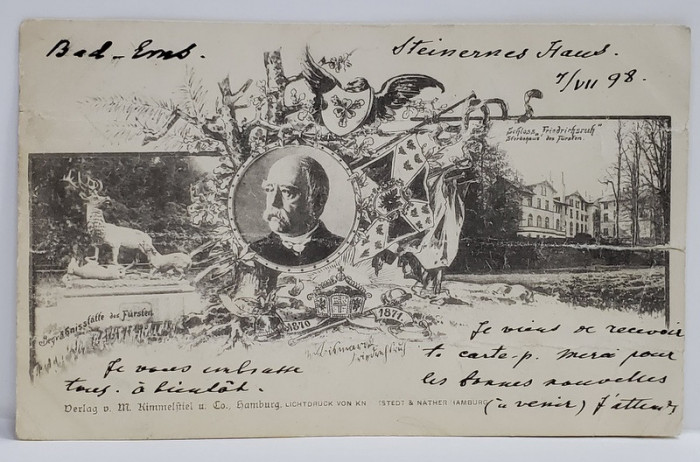 Bad-Ems.
Steinernes Haus.
7/VII 98.
Schloss "Friedrichsruh"
Sterbehaus des Fürsten.
Begräbnisstätte des Fürsten
1870 1871
v. Bismarck
Friedrichsruh
Je viens de recevoir
ta carte-p. merci pour
les bonnes nouvelles
(à venir) J'attends
Je vous embrasse
tous. à bientôt.
Verlag v. M. Kimmelstiel u. Co., Hamburg, LICHTDRUCK VON KN STEDT & NÄTHER HAMBURG